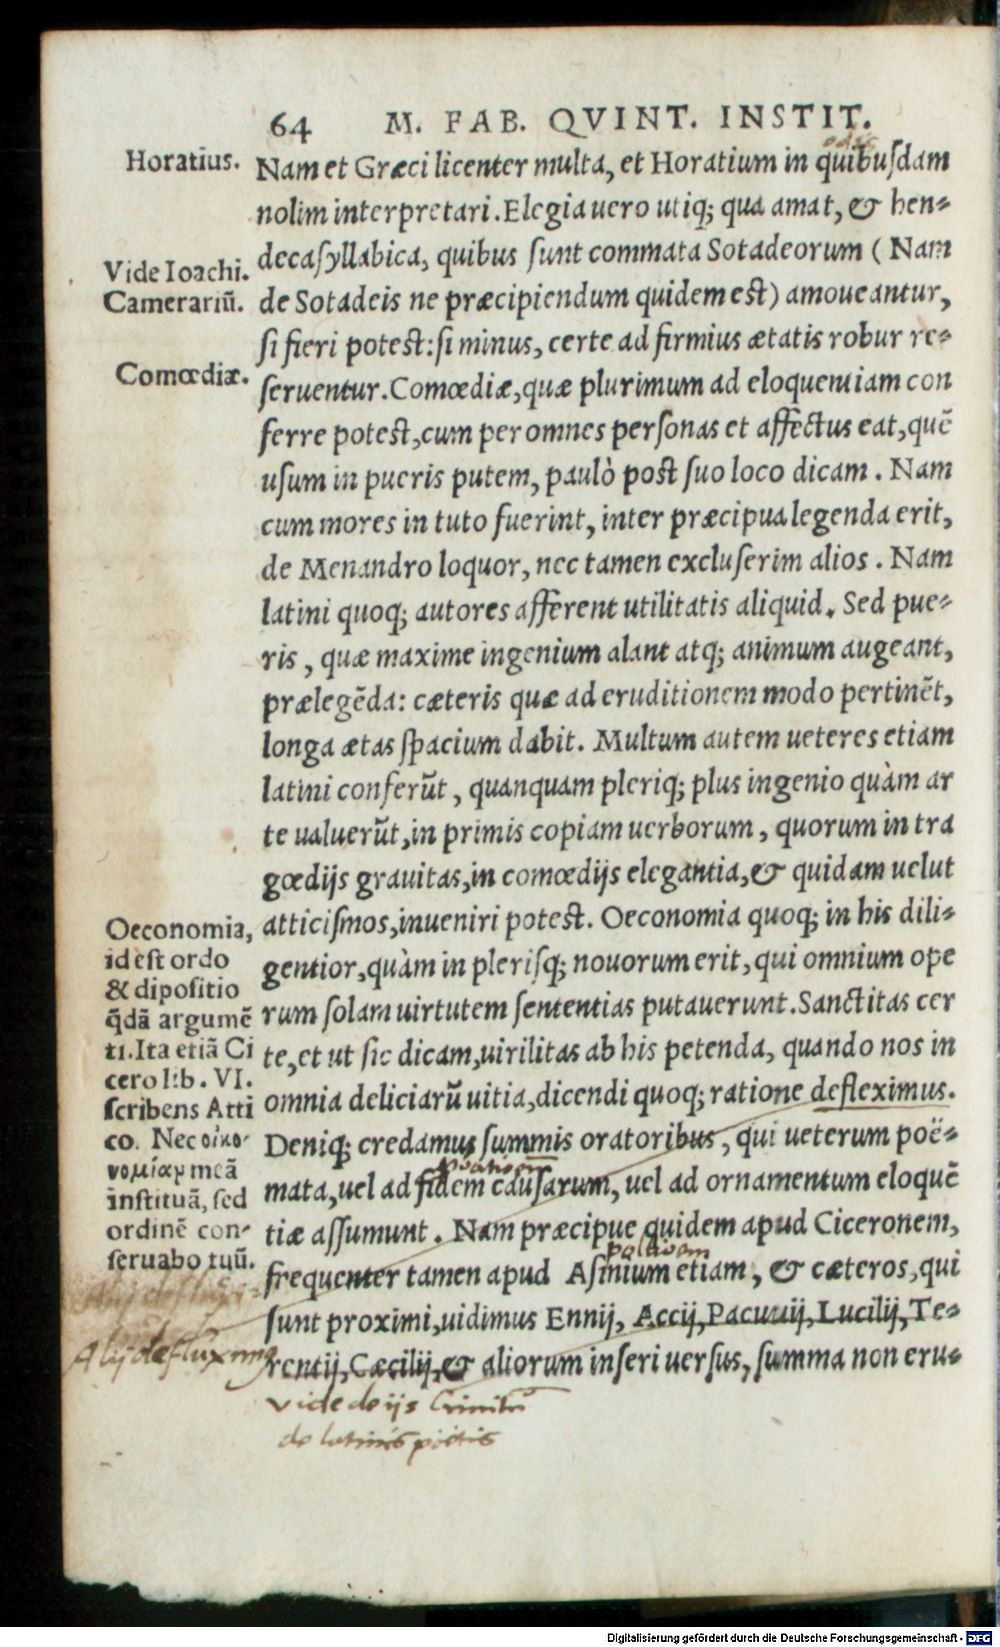 64 M. FAB. QVINT. INSTIT.
odis
Horatius.
Nam et Græci licenter multa, et Horatium in quibusdam
nolim interpretari. Elegia uero utiq; qua amat, & hen-
Vide Ioachi.
Camerariū.
decasyllabica, quibus sunt commata Sotadeorum (Nam
de Sotadeis ne præcipiendum quidem est) amoueantur,
si fieri potest: si minus, certe ad firmius ætatis robur re-
Comœdiæ.
seruentur. Comœdiæ, quæ plurimum ad eloquentiam con
ferre potest, cum per omnes personas et affectus eat, quē
usum in pueris putem, paulò post suo loco dicam. Nam
cum mores in tuto fuerint, inter præcipua legenda erit,
de Menandro loquor, nec tamen excluserim alios. Nam
latini quoq; autores afferent utilitatis aliquid. Sed pue-
ris, quæ maxime ingenium alant atq; animum augeant,
prælegēda: cæteris quæ ad eruditionem modo pertinēt,
longa ætas spacium dabit. Multum autem ueteres etiam
latini conferūt, quanquam pleriq; plus ingenio quàm ar
te ualuerūt, in primis copiam uerborum, quorum in tra
gœdijs grauitas, in comœdijs elegantia, & quidam uelut
atticismos, inueniri potest. Oeconomia quoq; in his dili-
gentior, quàm in plerisq; nouorum erit, qui omnium ope
rum solam uirtutem sententias putauerunt. Sanctitas cer
te, et ut sic dicam, uirilitas ab his petenda, quando nos in
omnia deliciarū uitia, dicendi quoq; ratione defleximus.
Deniq; credamus summis oratoribus, qui ueterum poë-
mata, uel ad fidem causarum, uel ad ornamentum eloquē
tiæ assumunt. Nam præcipue quidem apud Ciceronem,
frequenter tamen apud Asinium etiam, & cæteros, qui
sunt proximi, uidimus Ennij, Accij, Pacuuij, Lucilij, Te-
rentij, Cæcilij, & aliorum inseri uersus, summa non eru-
Oeconomia,
id est ordo
& dipositio
q̄dā argumē
ti. Ita etiā Ci
cero lib. VI.
scribens Atti
co. Nec οἰκο-
νομίαν meā
instituā, sed
ordinē con-
seruabo tuū.
Alij defluximus
Vide de ijs Crinitū
de latinis poetis